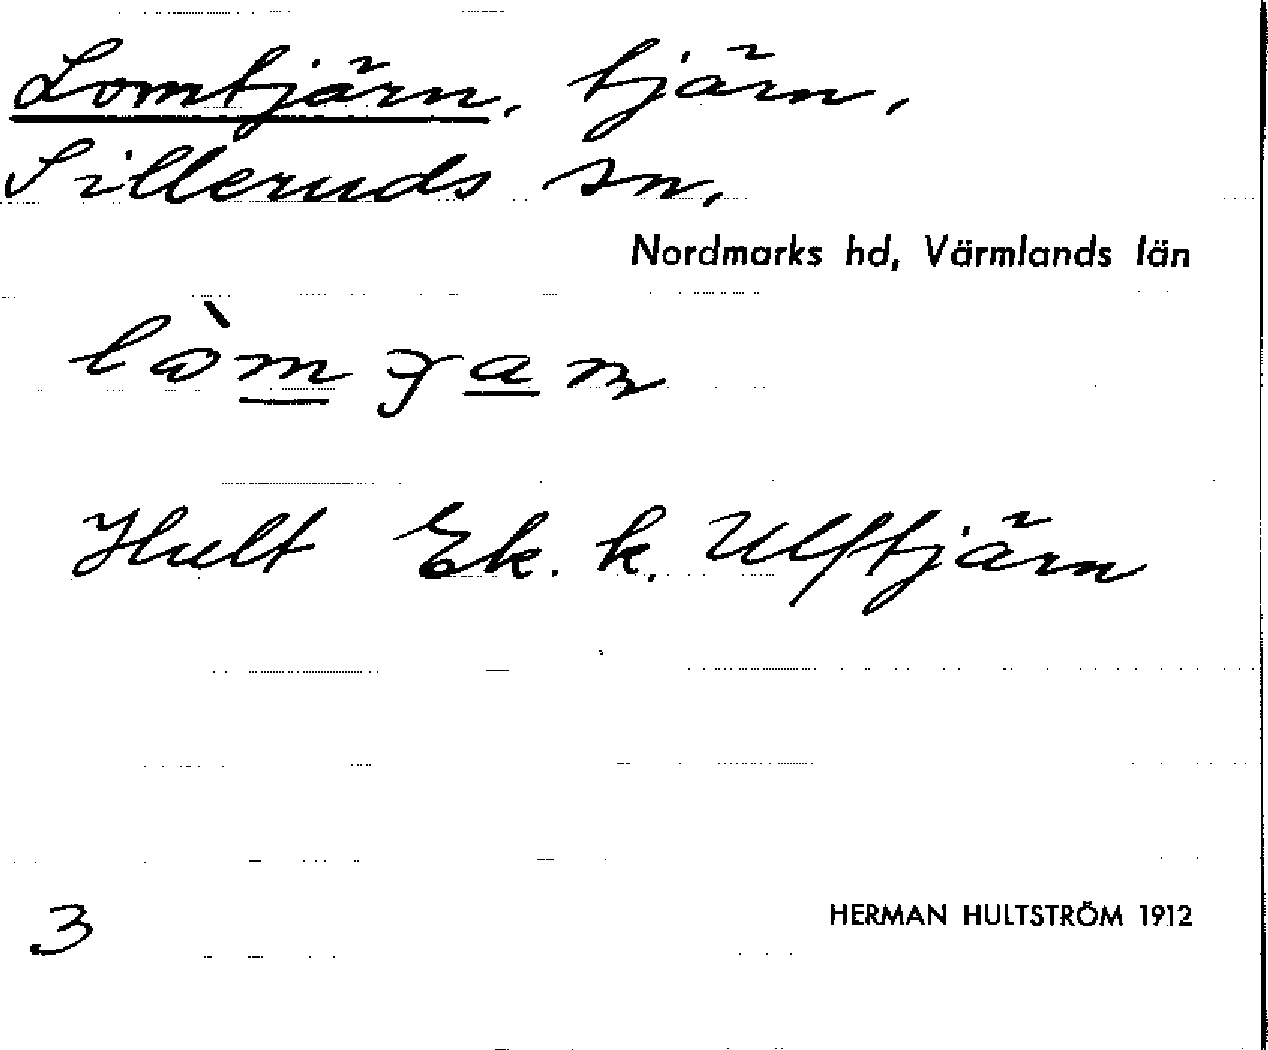 Lomtjärn, tjärn,
Silleruds sn,
Nordmarks hd, Värmlands län
Hult Ek. k. Ulftjärn
3
HERMAN HULTSTRÖM 1912